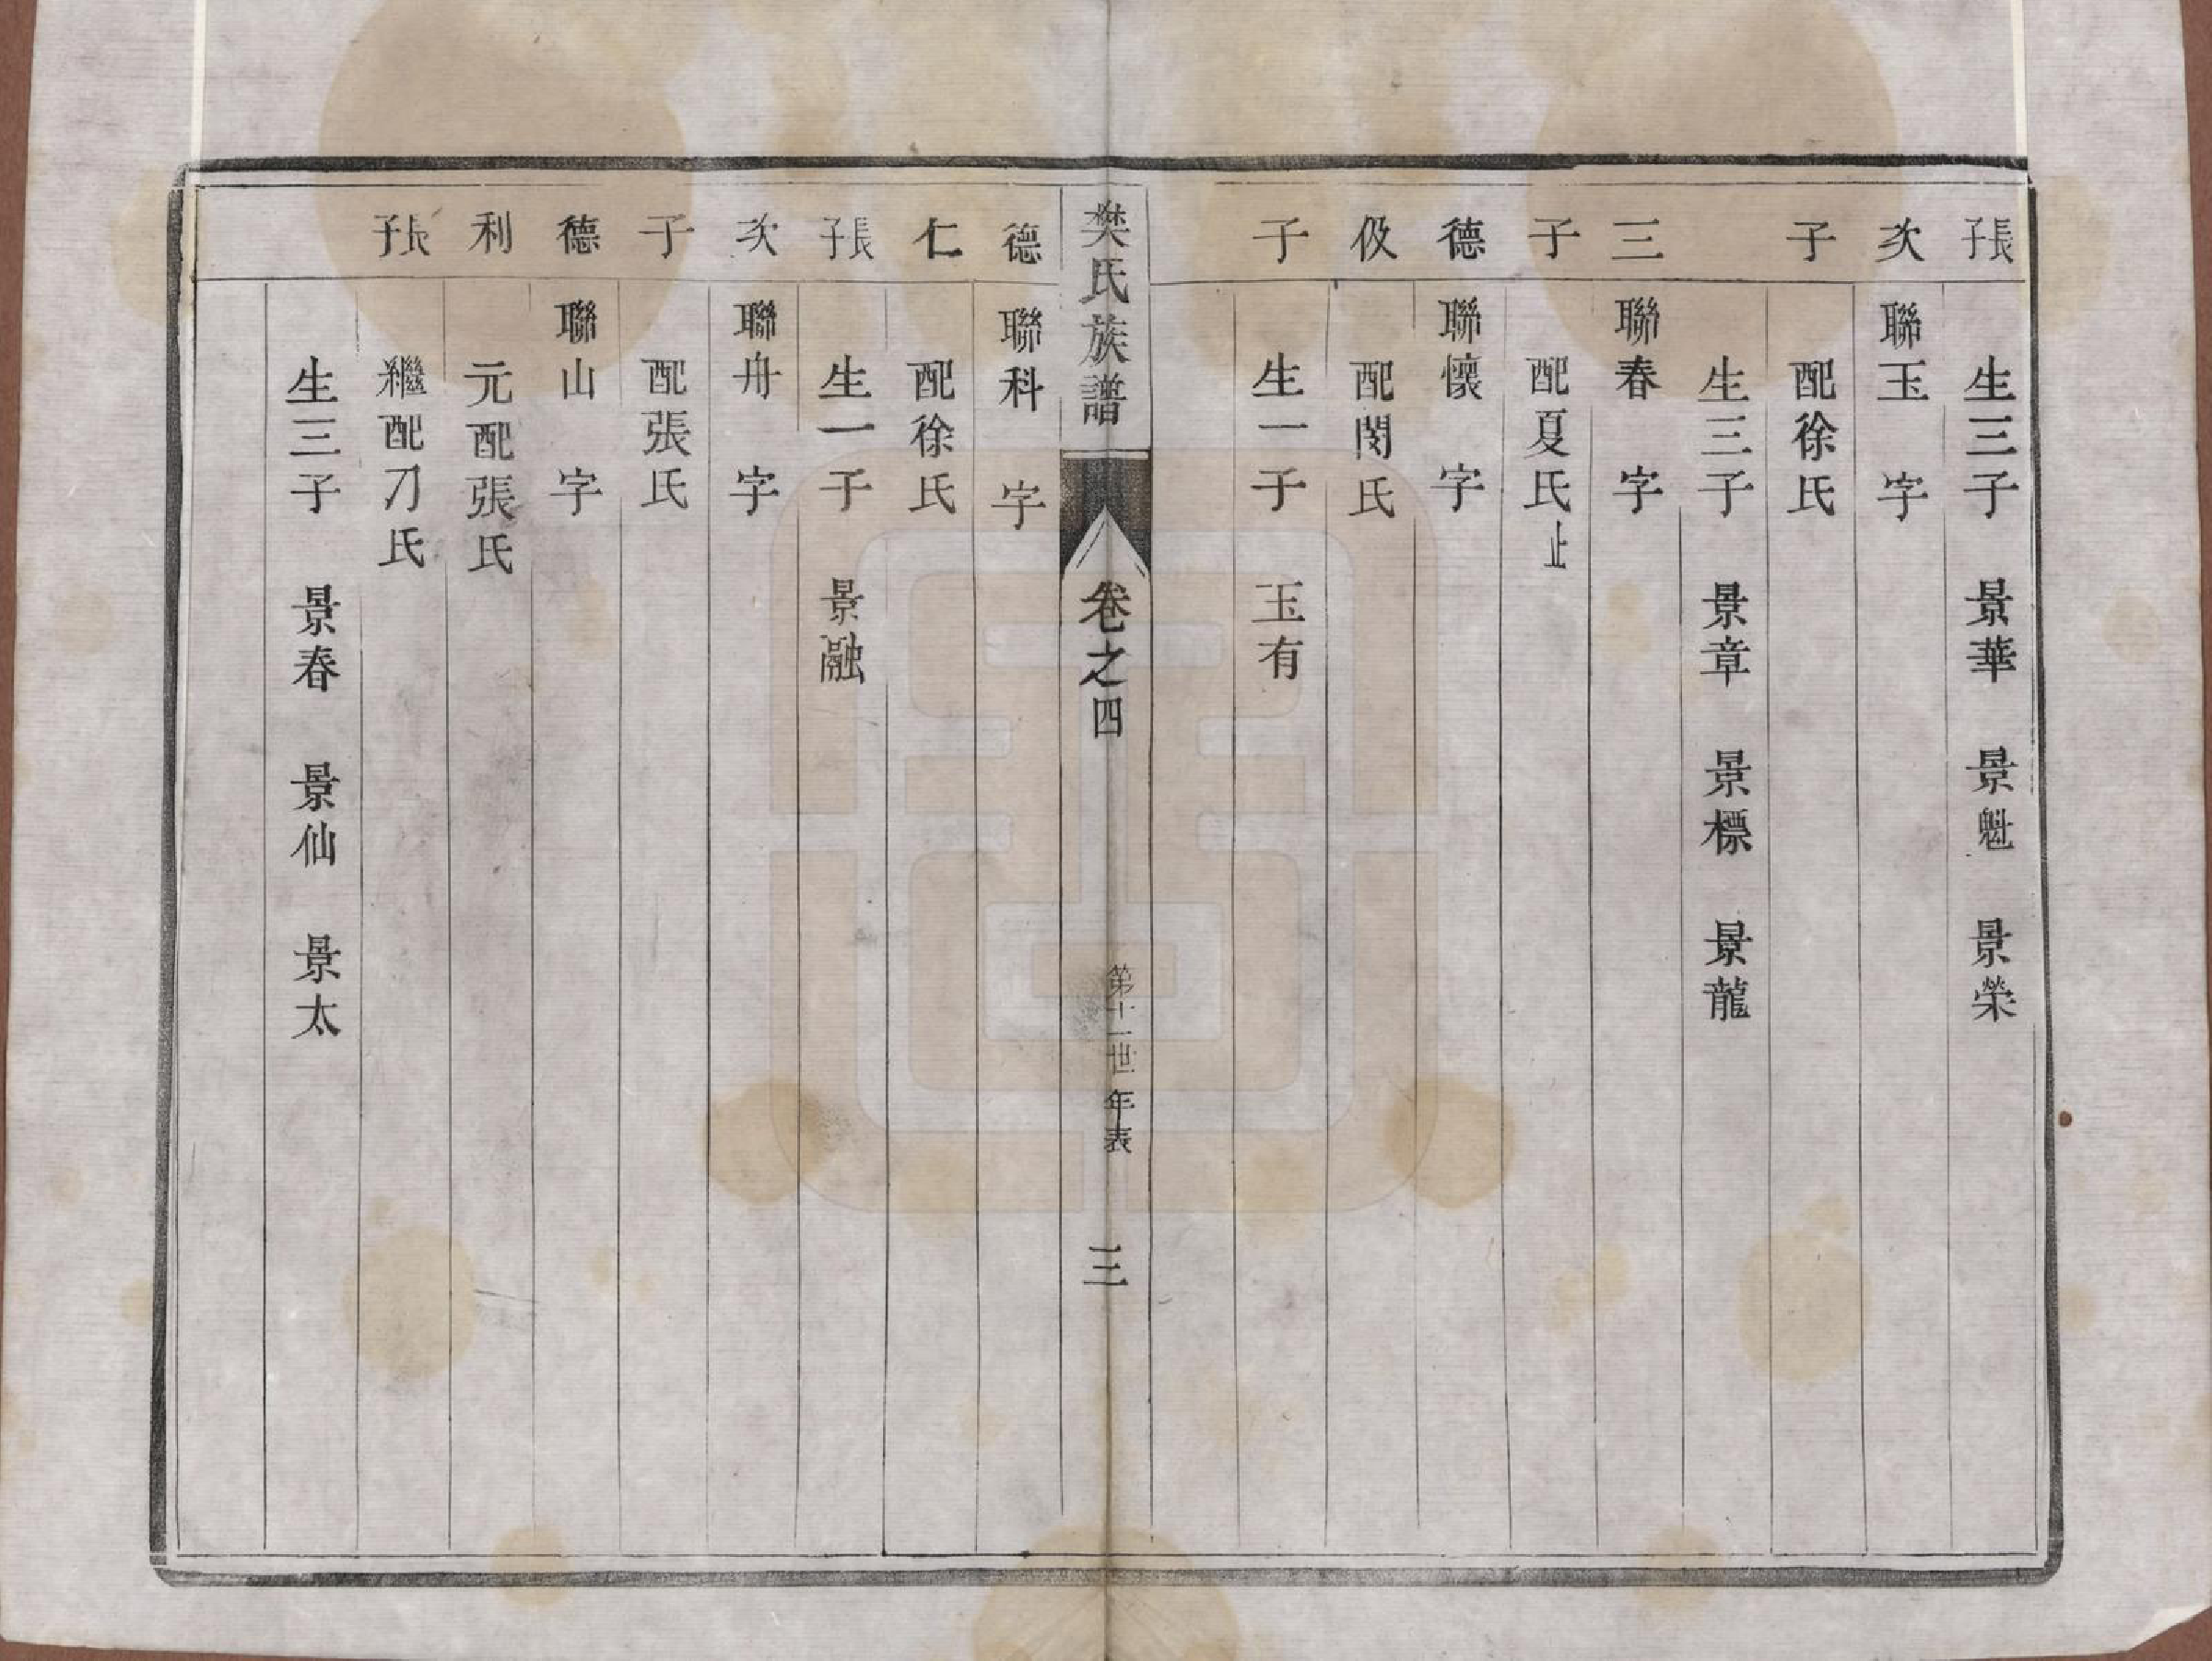 長子 生三子 景華 景魁 景榮
次 聯玉 字
子 配徐氏
生三子 景章 景標 景龍
三 聯春 字
子 配夏氏止
德 聯懷 字
伋 配閔氏
子 生一子 玉有
樊氏族譜 卷之四 第十一世年表 三
德 聯科 字
仁 配徐氏
長子 生一子 景融
次 聯舟 字
子 配張氏
德 聯山 字
利 元配張氏
長子 繼配刀氏
生三子 景春 景仙 景太